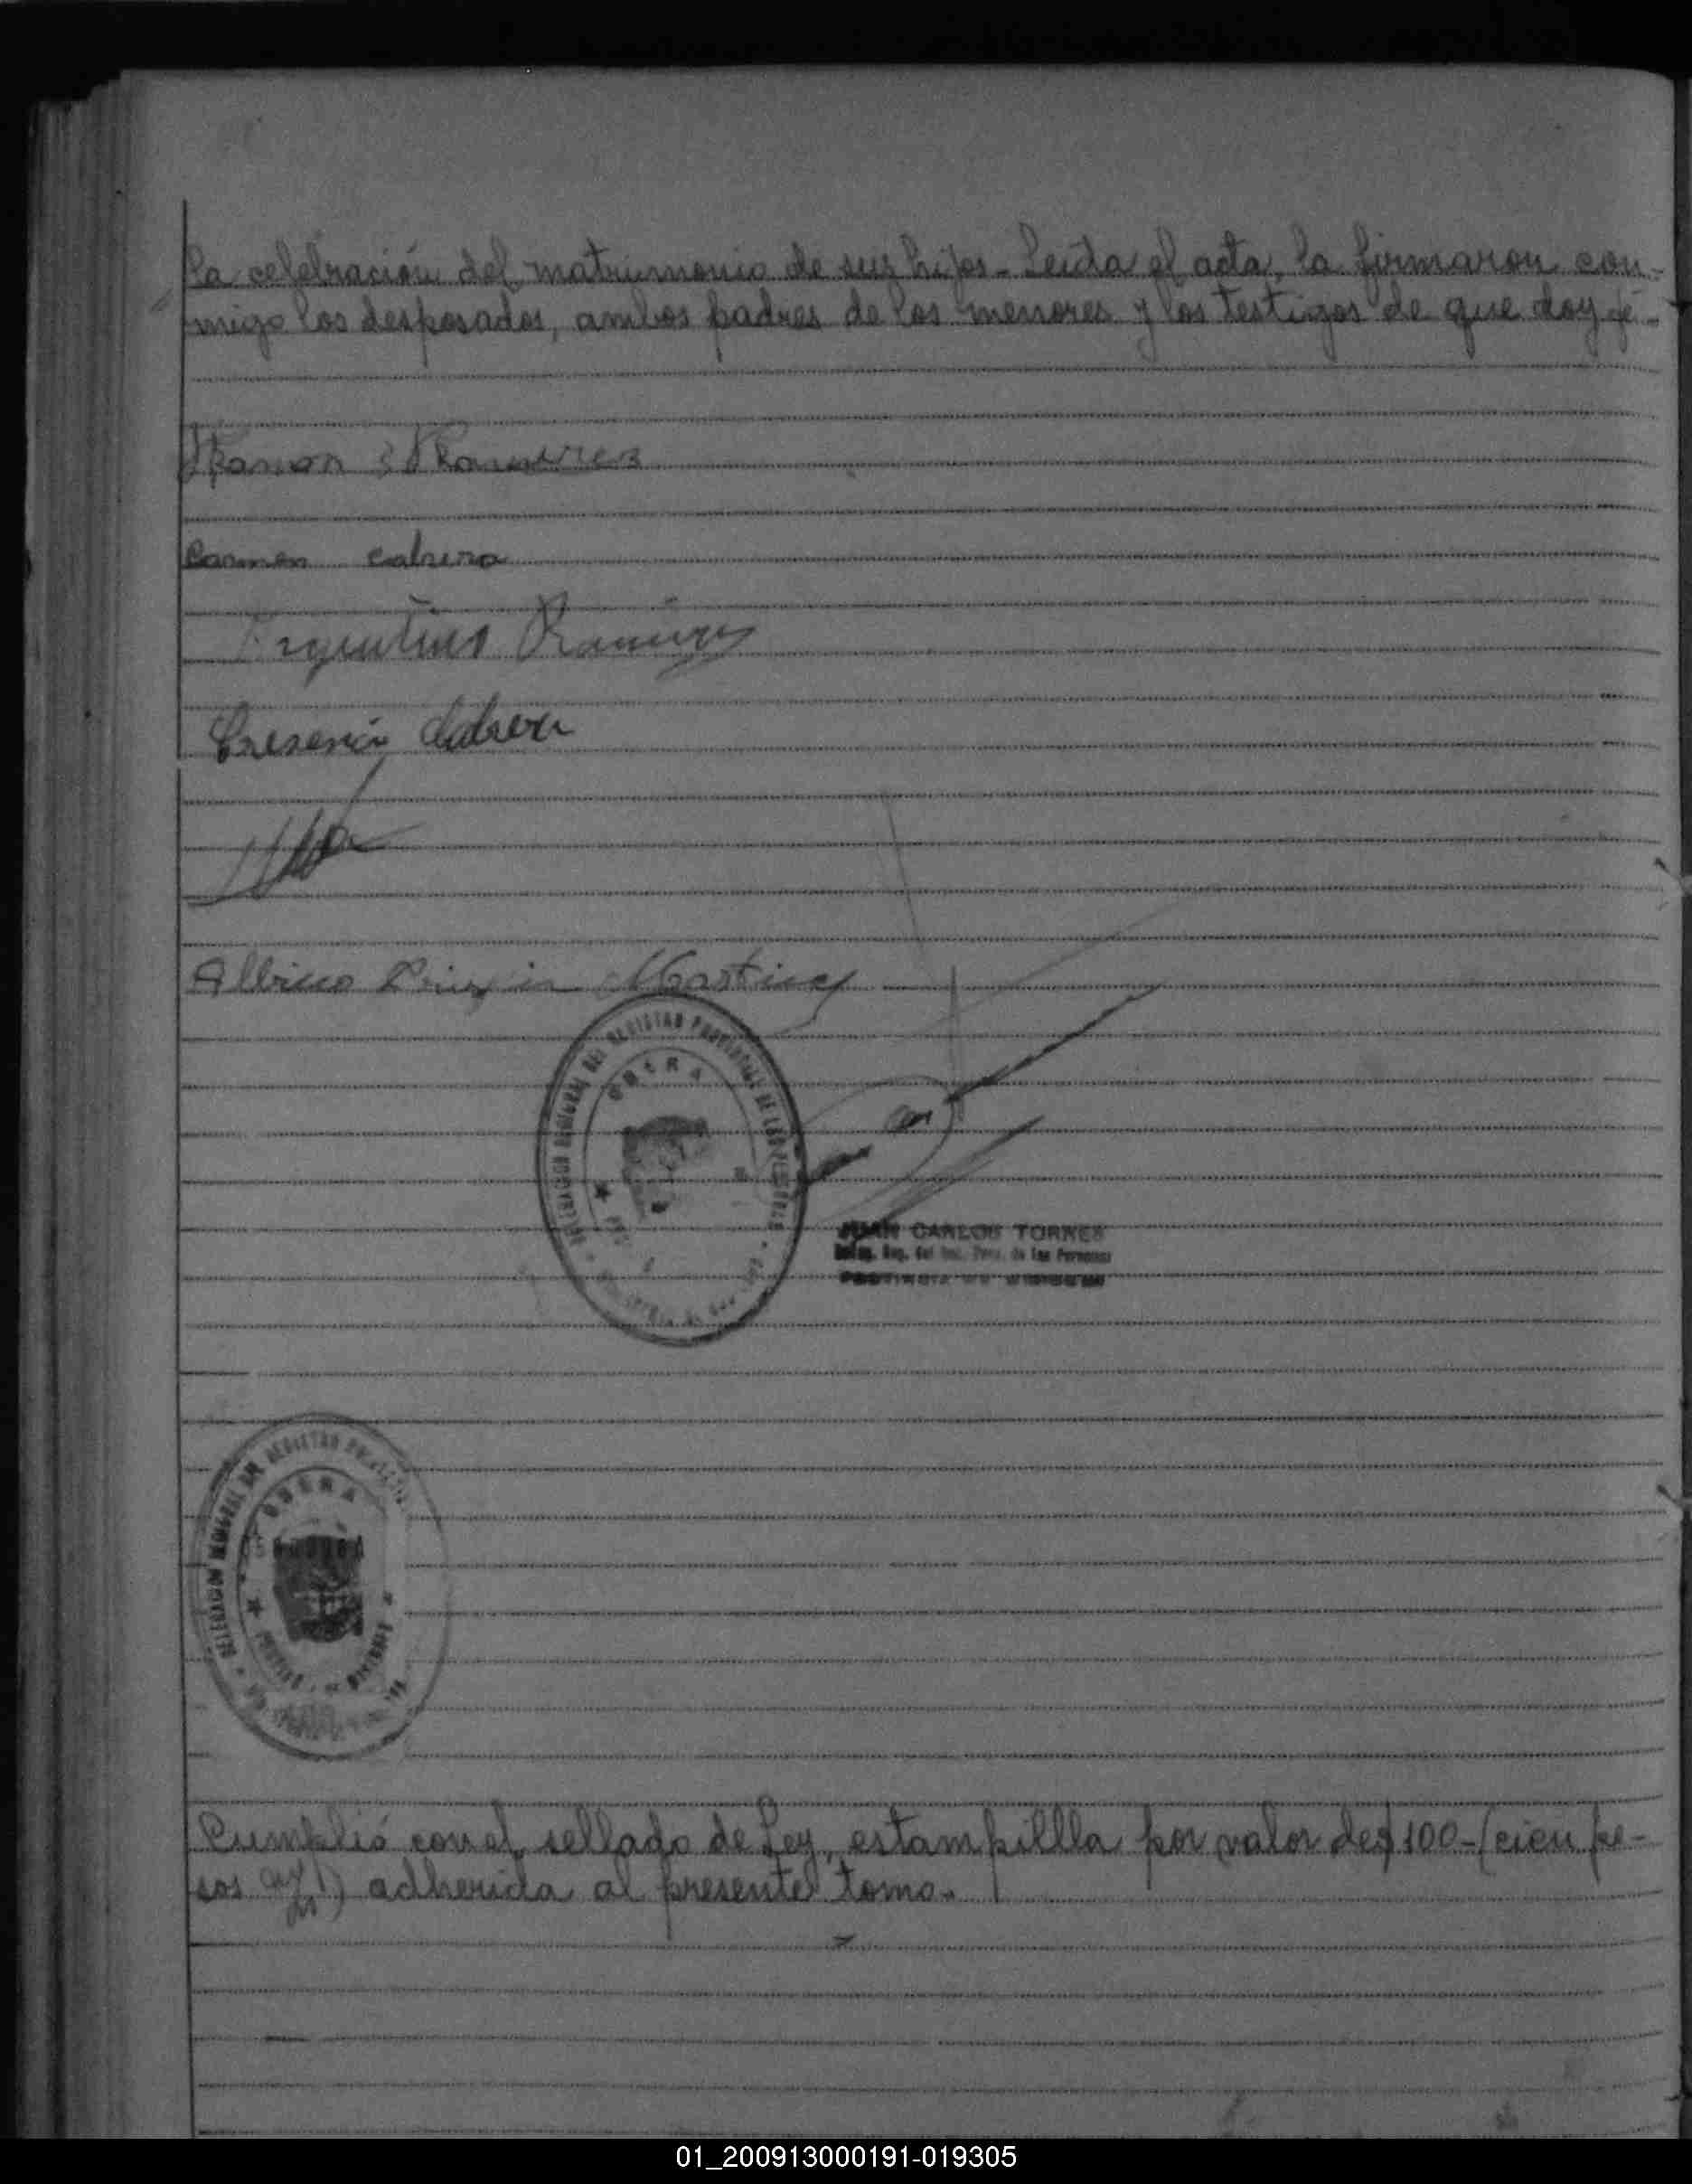 la celebración del matrimonio de sus hijos - Leída el acta, la firmaron con-
migo los desposados, ambos padres de los menores y los testigos de que doy fé -
Ramon Ramirez
Carmen cabrera
Argentino Ramirez
Cresencia Cabrera
Albino Martinez
DELEGACION REGIONAL DEL REGISTRO PROVINCIAL DE LAS PERSONAS
OBERA
JUAN CARLOS TORRES
Deleg. Reg. del Prov. de las Personas
PROVINCIA DE MISIONES
DELEGACION REGIONAL DEL REGISTRO PROVINCIAL
OBERA
PROVINCIA DE MISIONES
Cumplió con el sellado de Ley, estampillla por valor de $ 100 - (cien pe-
sos ) adherida al presente tomo.
01_200913000191-019305